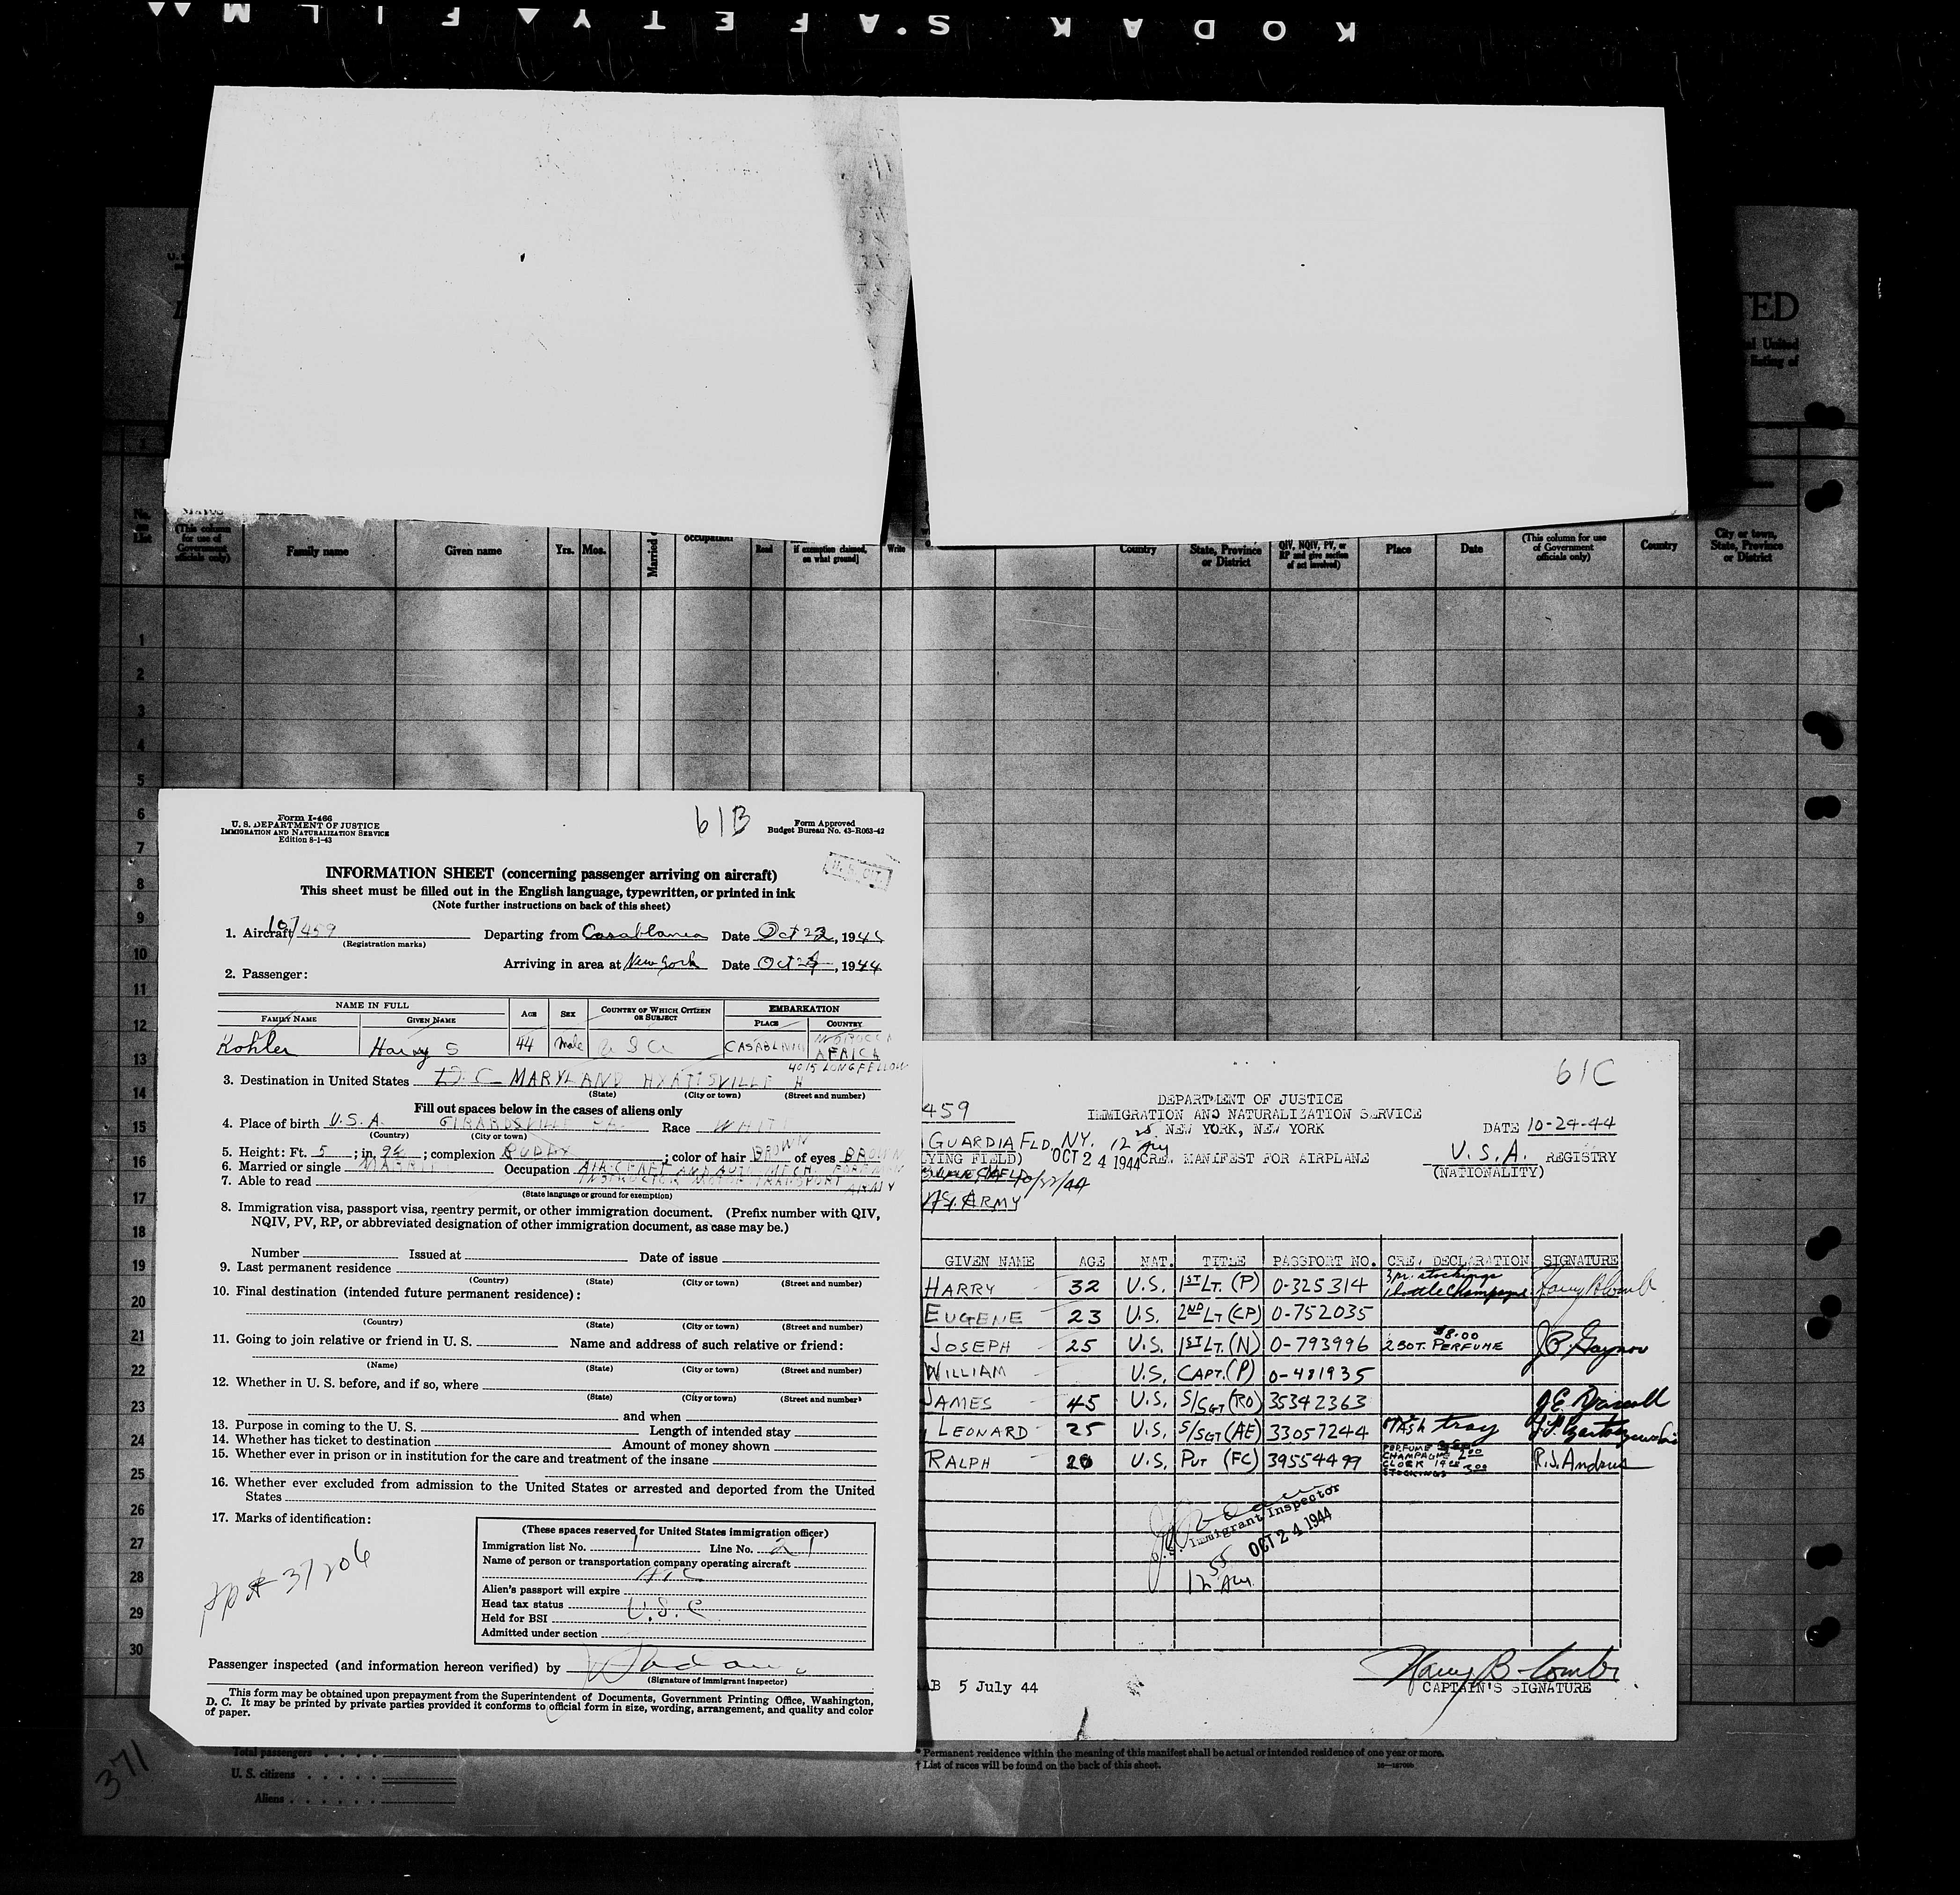 KODAK SAFETY FILM
TED
No. on List
(This column for use of Government officials only)
Family name
Given name
Yrs. Mos.
Read
if exemption claimed, on what ground)
Write
Country
State, Province or District
QIV, NQIV, PV, or RP and give section of act involved)
Place
Date
(This column for use of Government officials only)
Country
City or town, State, Province or District
1
2
3
4
5
6
7
8
9
10
11
12
13
14
15
16
17
18
19
20
21
22
23
24
25
26
27
28
29
30
Form I-466
U. S. DEPARTMENT OF JUSTICE
IMMIGRATION AND NATURALIZATION SERVICE
Edition 8-1-43
61B
Form Approved
Budget Bureau No. 43-R063-42
INFORMATION SHEET (concerning passenger arriving on aircraft)
This sheet must be filled out in the English language, typewritten, or printed in ink
(Note further instructions on back of this sheet)
1. Aircraft 107/459 Departing from Casablanca Date Oct 22, 1944
(Registration marks)
Arriving in area at New York Date Oct 24, 1944
2. Passenger:
NAME IN FULL AGE SEX COUNTRY OF WHICH CITIZEN OR SUBJECT EMBARKATION
FAMILY NAME GIVEN NAME PLACE COUNTRY
Kohler Harry S 44 Male U S A CASABLANCA MOROCCO AFRICA
4015 LONGFELLOW
3. Destination in United States D.C. MARYLAND HYATTSVILLE
(State) (City or town) (Street and number)
Fill out spaces below in the cases of aliens only
4. Place of birth U.S.A. GIRARDSVILLE PA. Race WHITE
(Country) (City or town)
5. Height: Ft. 5 ; in. 9½ ; complexion RUDDY ; color of hair BROWN of eyes BROWN
6. Married or single MARRIED Occupation AIRCRAFT AND AUTO MECH. FOREMAN
7. Able to read INSTRUCTOR MOTOR TRANSPORT ARMY
(State language or ground for exemption)
8. Immigration visa, passport visa, reentry permit, or other immigration document. (Prefix number with QIV,
NQIV, PV, RP, or abbreviated designation of other immigration document, as case may be.)
Number Issued at Date of issue
9. Last permanent residence
(Country) (State) (City or town) (Street and number)
10. Final destination (intended future permanent residence):
(Country) (State) (City or town) (Street and number)
11. Going to join relative or friend in U. S. Name and address of such relative or friend:
(Name) (State) (City or town) (Street and number)
12. Whether in U. S. before, and if so, where
(State) (City or town) (Street and number)
and when
13. Purpose in coming to the U. S. Length of intended stay
14. Whether has ticket to destination Amount of money shown
15. Whether ever in prison or in institution for the care and treatment of the insane
16. Whether ever excluded from admission to the United States or arrested and deported from the United
States
17. Marks of identification:
(These spaces reserved for United States immigration officer)
Immigration list No. 1 Line No. 21
Name of person or transportation company operating aircraft
ATC
Alien's passport will expire
Head tax status U.S.C.
Held for BSI
Admitted under section
pp# 37206
Passenger inspected (and information hereon verified) by
(Signature of immigrant inspector)
This form may be obtained upon prepayment from the Superintendent of Documents, Government Printing Office, Washington,
D. C. It may be printed by private parties provided it conforms to official form in size, wording, arrangement, and quality and color
of paper.
61C
459
DEPARTMENT OF JUSTICE
IMMIGRATION AND NATURALIZATION SERVICE
NEW YORK, NEW YORK
DATE 10-24-44
GUARDIA FLD. NY.
LYING FIELD)
OCT 24 1944
CREW MANIFEST FOR AIRPLANE
U.S.A. REGISTRY
(NATIONALITY)
10/22/44
ARMY
GIVEN NAME AGE NAT. TITLE PASSPORT NO. CREW DECLARATION SIGNATURE
HARRY 32 U.S. 1ST LT. (P) 0-325314 3 pr. stockings 1 bottle Champagne
EUGENE 23 U.S. 2ND LT (CP) 0-752035
JOSEPH 25 U.S. 1ST LT. (N) 0-793996 2 BOT. PERFUME $8.00 J.P. Gaynor
WILLIAM U.S. CAPT. (P) 0-481935
JAMES 45 U.S. S/SGT (RO) 35342363
LEONARD 25 U.S. S/SGT (AE) 33057244 ASH tray
RALPH 20 U.S. PVT (FC) 39554497 PERFUME CHAMPAGNE 2.00 CLOCK STOCKINGS 3.00 R.J. Andrus
U.S. Immigrant Inspector
OCT 24 1944
12 55 AM
AB 5 July 44
Harry B. Combs
CAPTAIN'S SIGNATURE
371
Total passengers
U. S. citizens
Aliens
* Permanent residence within the meaning of this manifest shall be actual or intended residence of one year or more.
† List of races will be found on the back of this sheet.